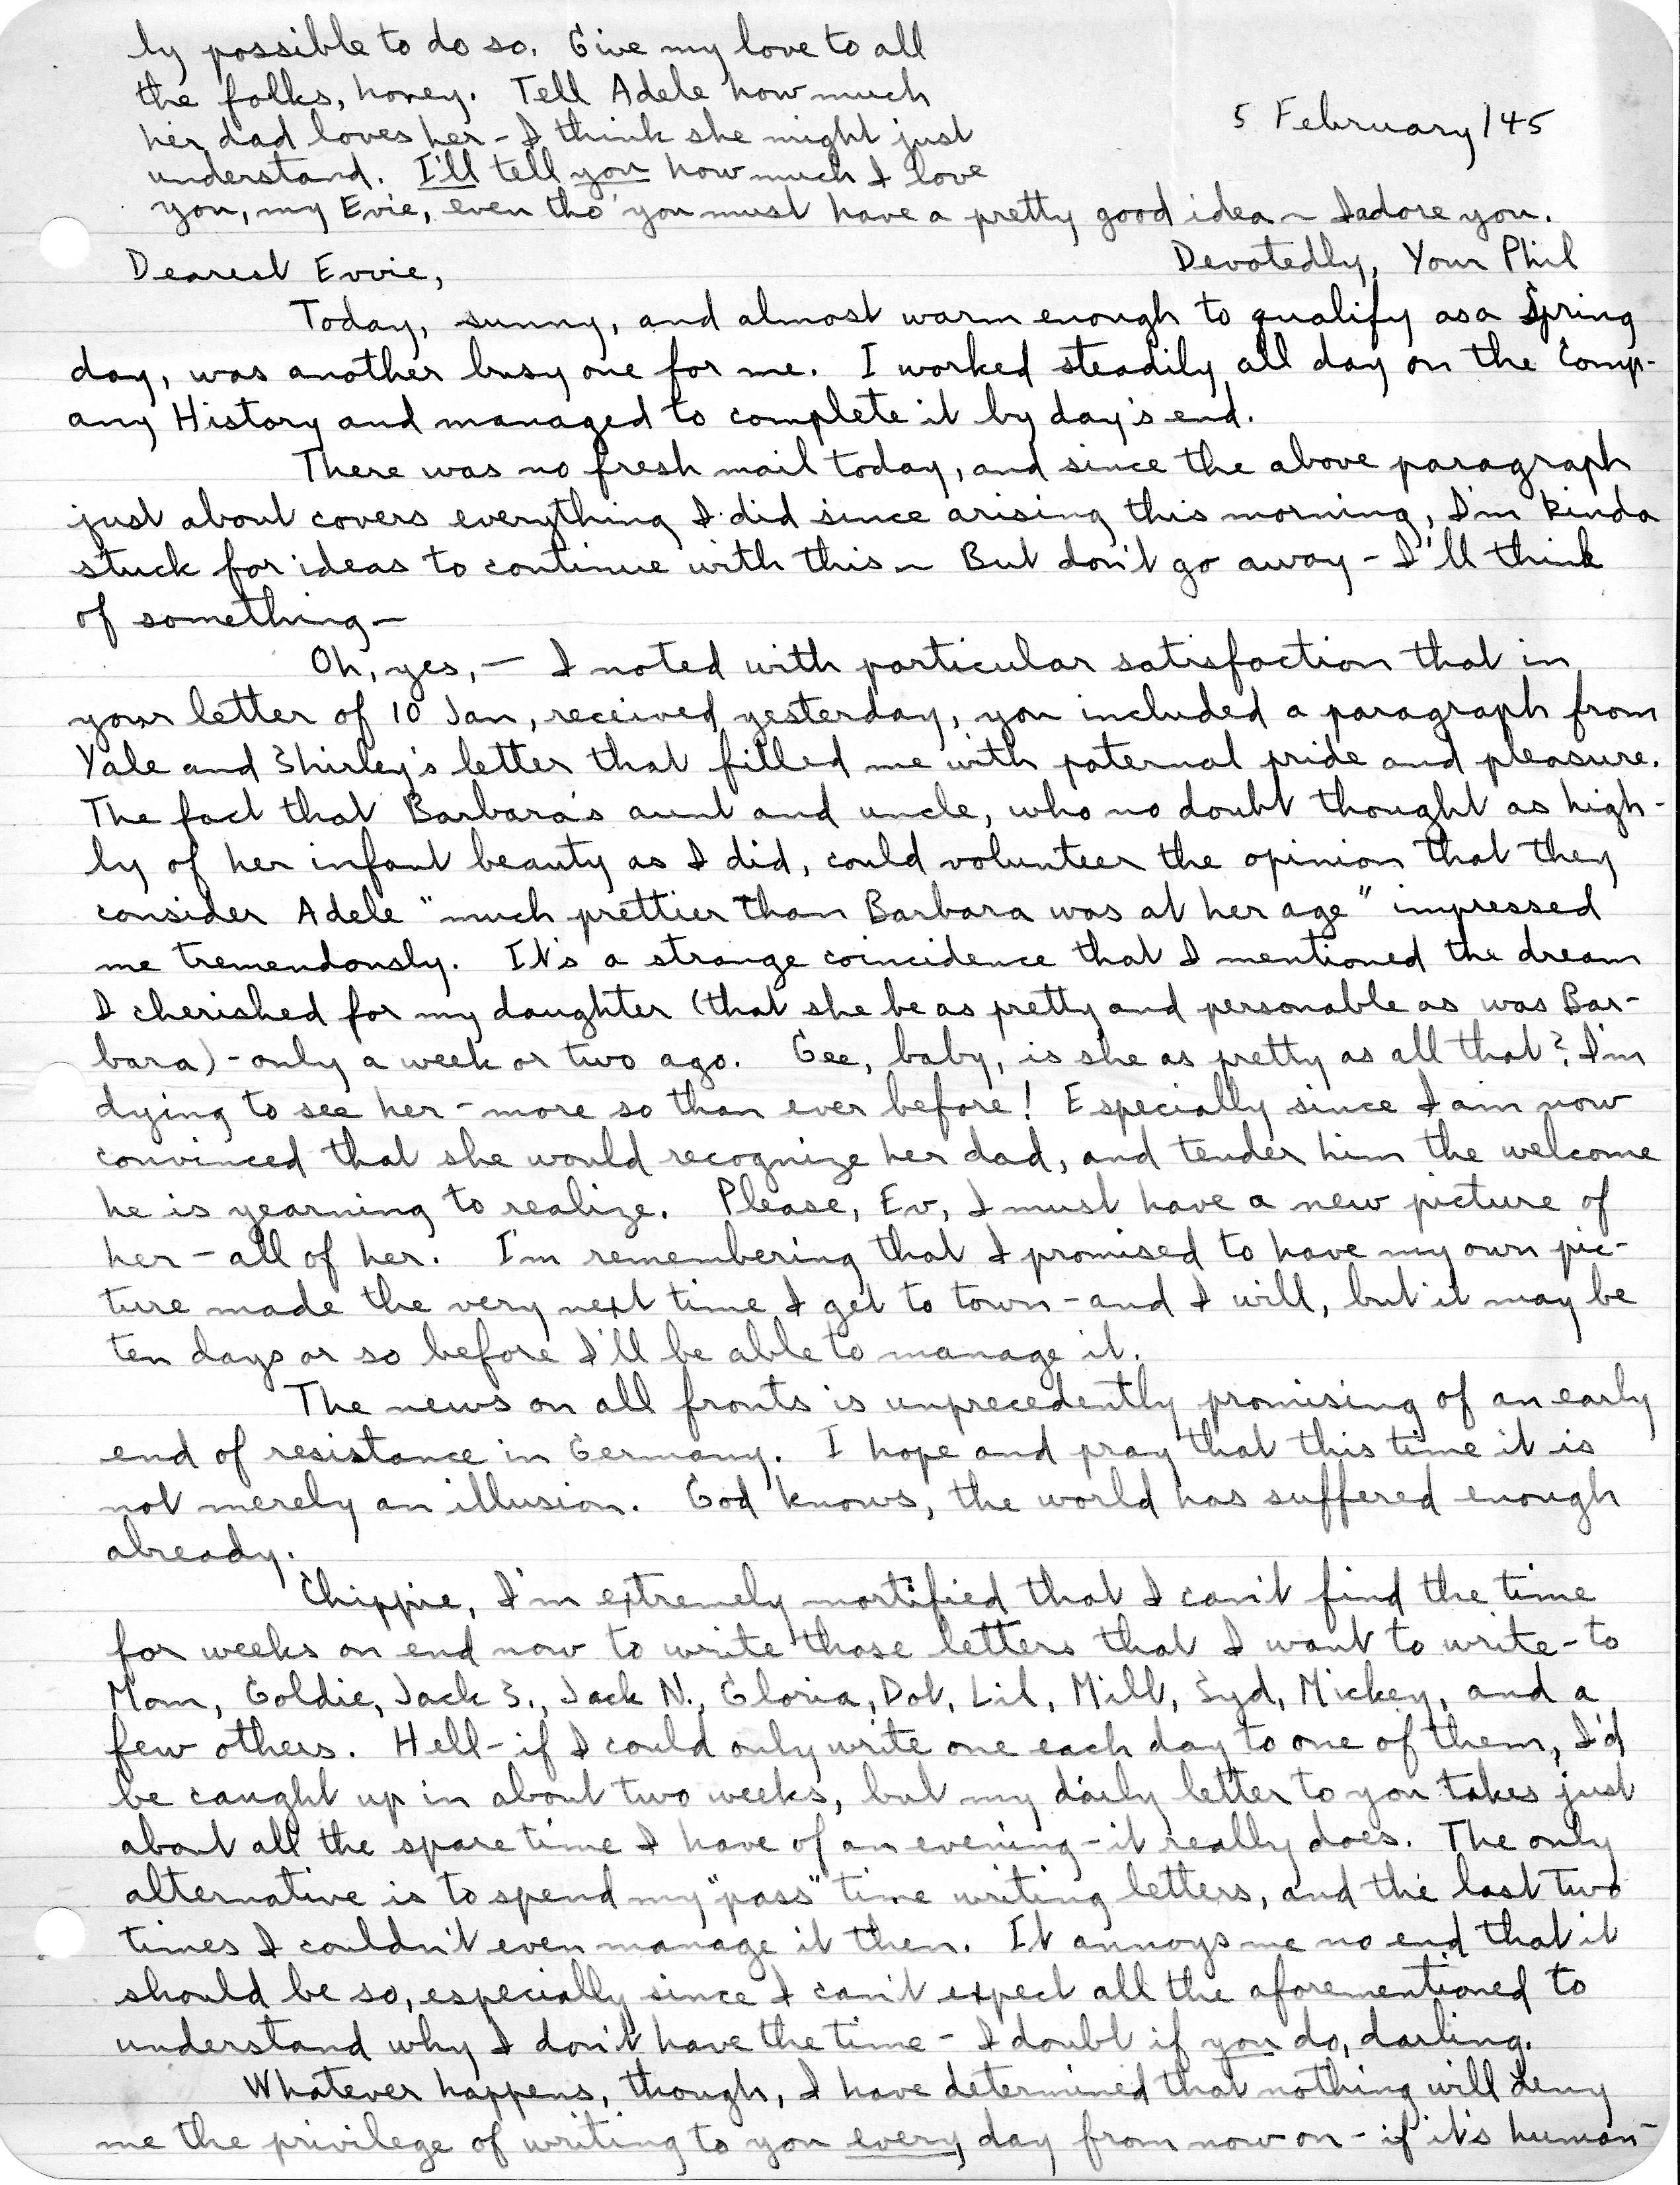 5 February/45
Dearest Evvie,
Today, sunny, and almost warm enough to qualify as a Spring
day, was another busy one for me. I worked steadily all day on the Comp-
any History and managed to complete it by day's end.
There was no fresh mail today, and since the above paragraph
just about covers everything I did since arising this morning, I'm kinda
stuck for ideas to continue with this ~ But don't go away - I'll think
of something—
Oh, yes, — I noted with particular satisfaction that in
your letter of 10 Jan, received yesterday, you included a paragraph from
Yale and Shirley's letter that filled me with paternal pride and pleasure.
The fact that Barbara's aunt and uncle, who no doubt thought as high-
ly of her infant beauty as I did, could volunteer the opinion that they
consider Adele "much prettier than Barbara was at her age" impressed
me tremendously. It's a strange coincidence that I mentioned the dream
I cherished for my daughter (that she be as pretty and personable as was Bar-
bara) - only a week or two ago. Gee, baby, is she as pretty as all that? I'm
dying to see her - more so than ever before! Especially since I am now
convinced that she would recognize her dad, and tender him the welcome
he is yearning to realize. Please, Ev, I must have a new picture of
her - all of her. I'm remembering that I promised to have my own pic-
ture made the very next time I get to town - and I will, but it may be
ten days or so before I'll be able to manage it.
The news on all fronts is unprecedently promising of an early
end of resistance in Germany. I hope and pray that this time it is
not merely an illusion. God knows, the world has suffered enough
already.
Chippie, I'm extremely mortified that I can't find the time
for weeks on end now to write those letters that I want to write - to
Mom, Goldie, Jack S., Jack N., Gloria, Dot, Lil, Mill, Syd, Mickey, and a
few others. Hell - if I could only write one each day to one of them, I'd
be caught up in about two weeks, but my daily letter to you takes just
about all the spare time I have of an evening - it really does. The only
alternative is to spend my "pass" time writing letters, and the last two
times I couldn't even manage it then. It annoys me no end that it
should be so, especially since I can't expect all the aforementioned to
understand why I don't have the time - I doubt if you do, darling.
Whatever happens, though, I have determined that nothing will deny
me the privilege of writing to you every day from now on - if it's human-
ly possible to do so. Give my love to all
the folks, honey. Tell Adele how much
her dad loves her - I think she might just
understand. I'll tell you how much I love
you, my Evie, even tho' you must have a pretty good idea ~ I adore you.
Devotedly, Your Phil